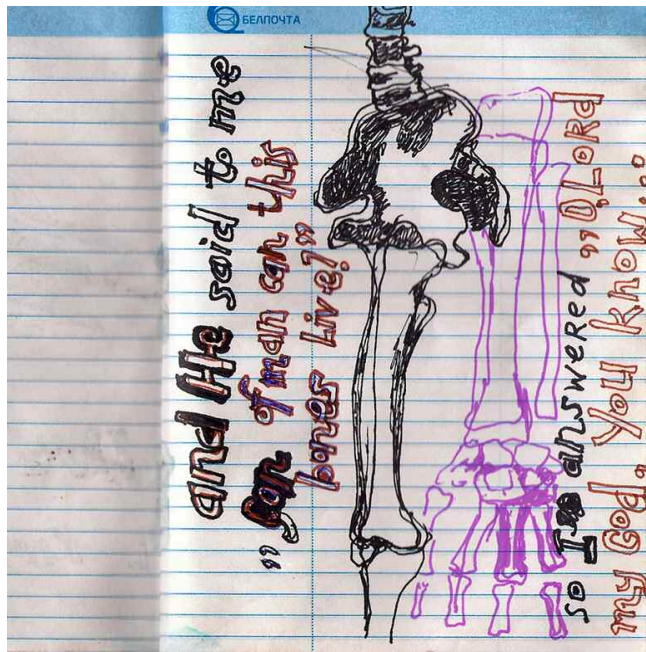 БЕЛПОЧТА
and He said to me
"Son of man can this
bones live?"
so I answered "O, Lord
my God, You know...